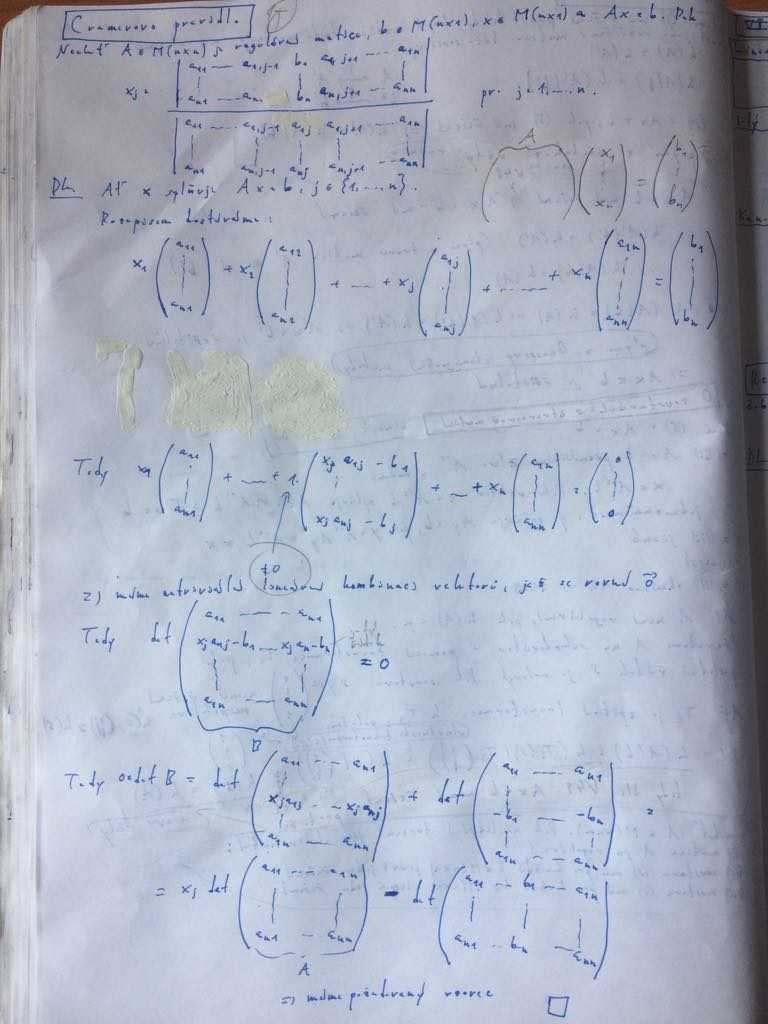 Cramerovo pravidl. T
Nechť A ∈ M(n×n) je regulární matice, b ∈ M(n×1), x ∈ M(n×1) a Ax = b. Pak
x_j = | a_11 ... a_1,j-1 b_1 a_1,j+1 ... a_1n | pro j = 1, ..., n.
| a_n1 ... b_n a_n,j+1 ... a_nn |
| a_11 ... a_1,j-1 a_1j a_1,j+1 ... a_1n |
| a_n1 ... a_n,j-1 a_nj a_n,j+1 ... a_nn |
A
( ) ( x_1 ... x_n ) = ( b_1 ... b_n )
Dk. Ať x splňuje Ax = b, j ∈ {1, ..., n}.
Rozepsáním dostáváme:
x_1 ( a_11 ... a_n1 ) + x_2 ( a_12 ... a_n2 ) + ... + x_j ( a_1j ... a_nj ) + ... + x_n ( a_1n ... a_nn ) = ( b_1 ... b_n )
Tedy x_1 ( a_11 ... a_n1 ) + ... + 1. ( x_j a_1j - b_1 ... x_j a_nj - b_j ) + ... + x_n ( a_1n ... a_nn ) = ( 0 ... 0 )
≠0
=> máme netriviální lineární kombinaci vektorů, jež se rovná 0⃗
Tedy det ( a_11 ... a_n1
x_j a_1j - b_1 ... x_j a_n - b_n
a_1n ... a_nn ) = 0
B
Tedy 0 = det B = det ( a_11 ... a_n1
x_j a_1j ... x_j a_nj
a_1n ... a_nn ) + det ( a_11 ... a_n1
-b_1 ... -b_n
a_1n ... a_nn ) =
= x_j det ( a_11 ... a_1n
a_n1 ... a_nn ) - det ( a_11 ... b_1 ... a_1n
a_n1 ... b_n ... a_nn )
A
=> máme požadovaný vzorec □